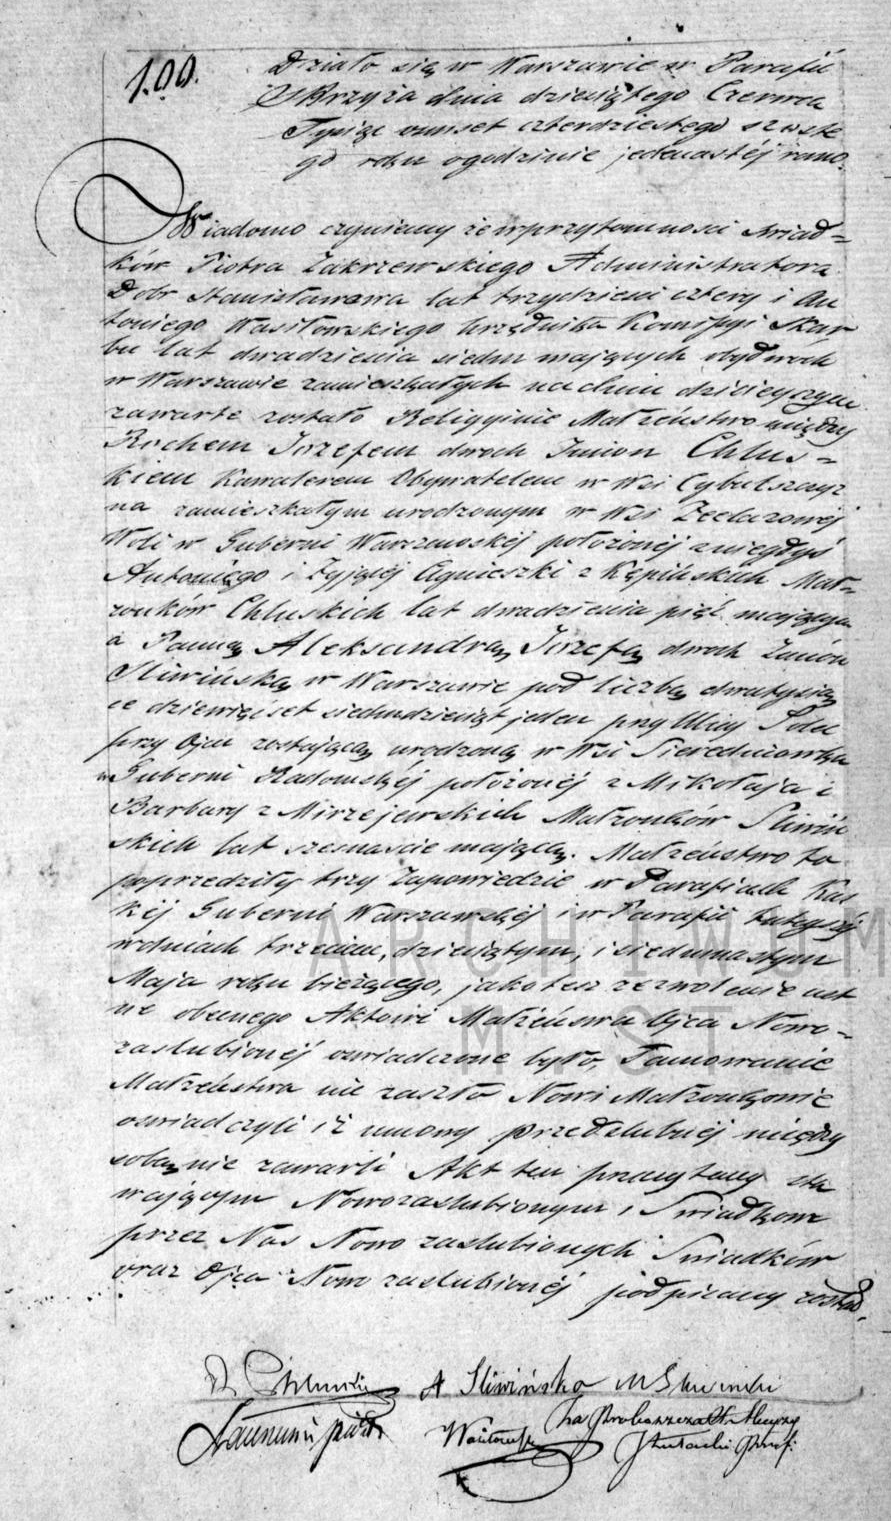 100.
Działo się w Warszawie w Parafii
S. Krzyża dnia dziewiątego Czerwca
Tysiąc ośmset czterdziestego szóste
go roku o godzinie jedenastéj rano.
Wiadomo czyniemy że w przytomności świad=
ków Piotra Zakrzewskiego Administratora
Dobr Stanisławowa lat trzydzieści cztery i An
toniego Wasiłowskiego Urzędnika Kommissyi Skar
bu lat dwadzieścia siedm mających obydwoch
w Warszawie zamieszkałych na dniu dzisieyszym
zawarte zostało Religijnie Małżeństwo między
Rochem Jozefem dwoch Imion Chlus=
kiem Kawalerem Obywatelem w Wsi Cybulszczyz
na zamieszkałym urodzonym w Wsi Żelazowéj
Woli w Guberni Warszawskéj położonéj z niegdyś
Antoniego i żyjącéj Agnieszki z Kępińskich Mał=
żonków Chluskich lat dwadzieścia pięć mającym
a Panną Aleksandrą Jozefą dwoch Imion
Sliwińską w Warszawie pod liczbą dwutysią
ce dziewięćset siedmdziesiąt jeden przy Ulicy Solec
przy Ojcu zostającą urodzoną w Wsi
w Guberni Radomskéj położonéj z Mikołaja i
Barbary z Mirzejewskich Małżonków Sliwiń
skich lat szesnaście mającą. Małżeństwo to
poprzedziły trzy Zapowiedzie w Parafiach Kas
kéj Guberni Warszawskéj i w Parafii tutejszéj
w dniach trzecim, dziesiątym, i siedmnastym
Maja roku bieżącego, jako też zezwolenie ust
ne obecnego Aktowi Małżeństwa Ojca Nowo=
zaslubionéj oswiadczone było, Tamowanie
Małżeństwa nie zaszło Nowi Małżonkowie
oswiadczyli iż umowy przedslubnéj między
sobą nie zawarli Akt ten przeczytany sta
wającym Nowozaslubionym i Swiadkom
przez Nas Nowo zaslubionych Swiadków
oraz Ojca Nowo zaslubionéj podpisany został.
A Sliwińska M Sliwinski
Za Proboszcza
ARCHIWUM
M ST